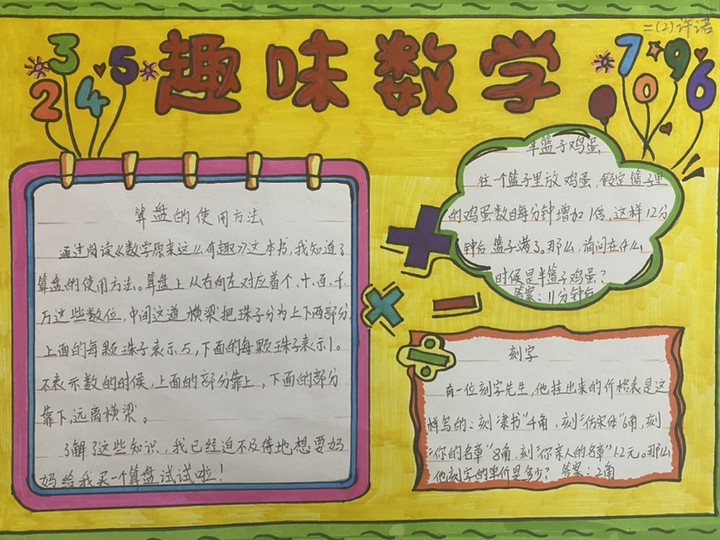 二(2)许诺
趣味数学
3
2
4
5
7
0
9
6
算盘的使用方法
通过阅读《数学原来这么有趣》这本书,我知道了
算盘的使用方法。算盘上从右向左对应着个、十、百、千、
万这些数位,中间这道横梁把珠子分为上下两部分,
上面的每颗珠子表示5,下面的每颗珠子表示1。
不表示数的时候,上面的部分靠上,下面的部分
靠下,远离横梁。
了解了这些知识,我已经迫不及待地想要妈
妈给我买一个算盘试试啦!
半篮子鸡蛋
往一个篮子里放鸡蛋,假定篮子里
的鸡蛋数每分钟增加1倍,这样12分
钟后篮子满了。那么,请问在什么
时候是半篮子鸡蛋?
答案:11分钟后
刻字
有一位刻字先生,他挂出来的价格表是这
样写的:刻“隶书”4角,刻“仿宋体”6角,刻
“你的名章”8角,刻“你亲人的名章”12元。那么
他刻字的单价是多少?答案:2角